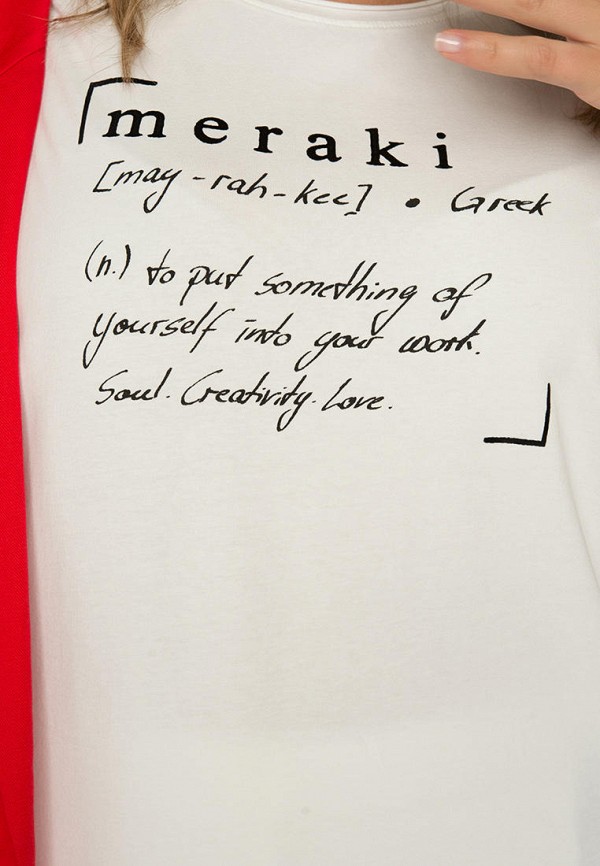 meraki
[may-rah-kee] • Greek
(n.) to put something of
yourself into your work.
Soul. Creativity. Love.